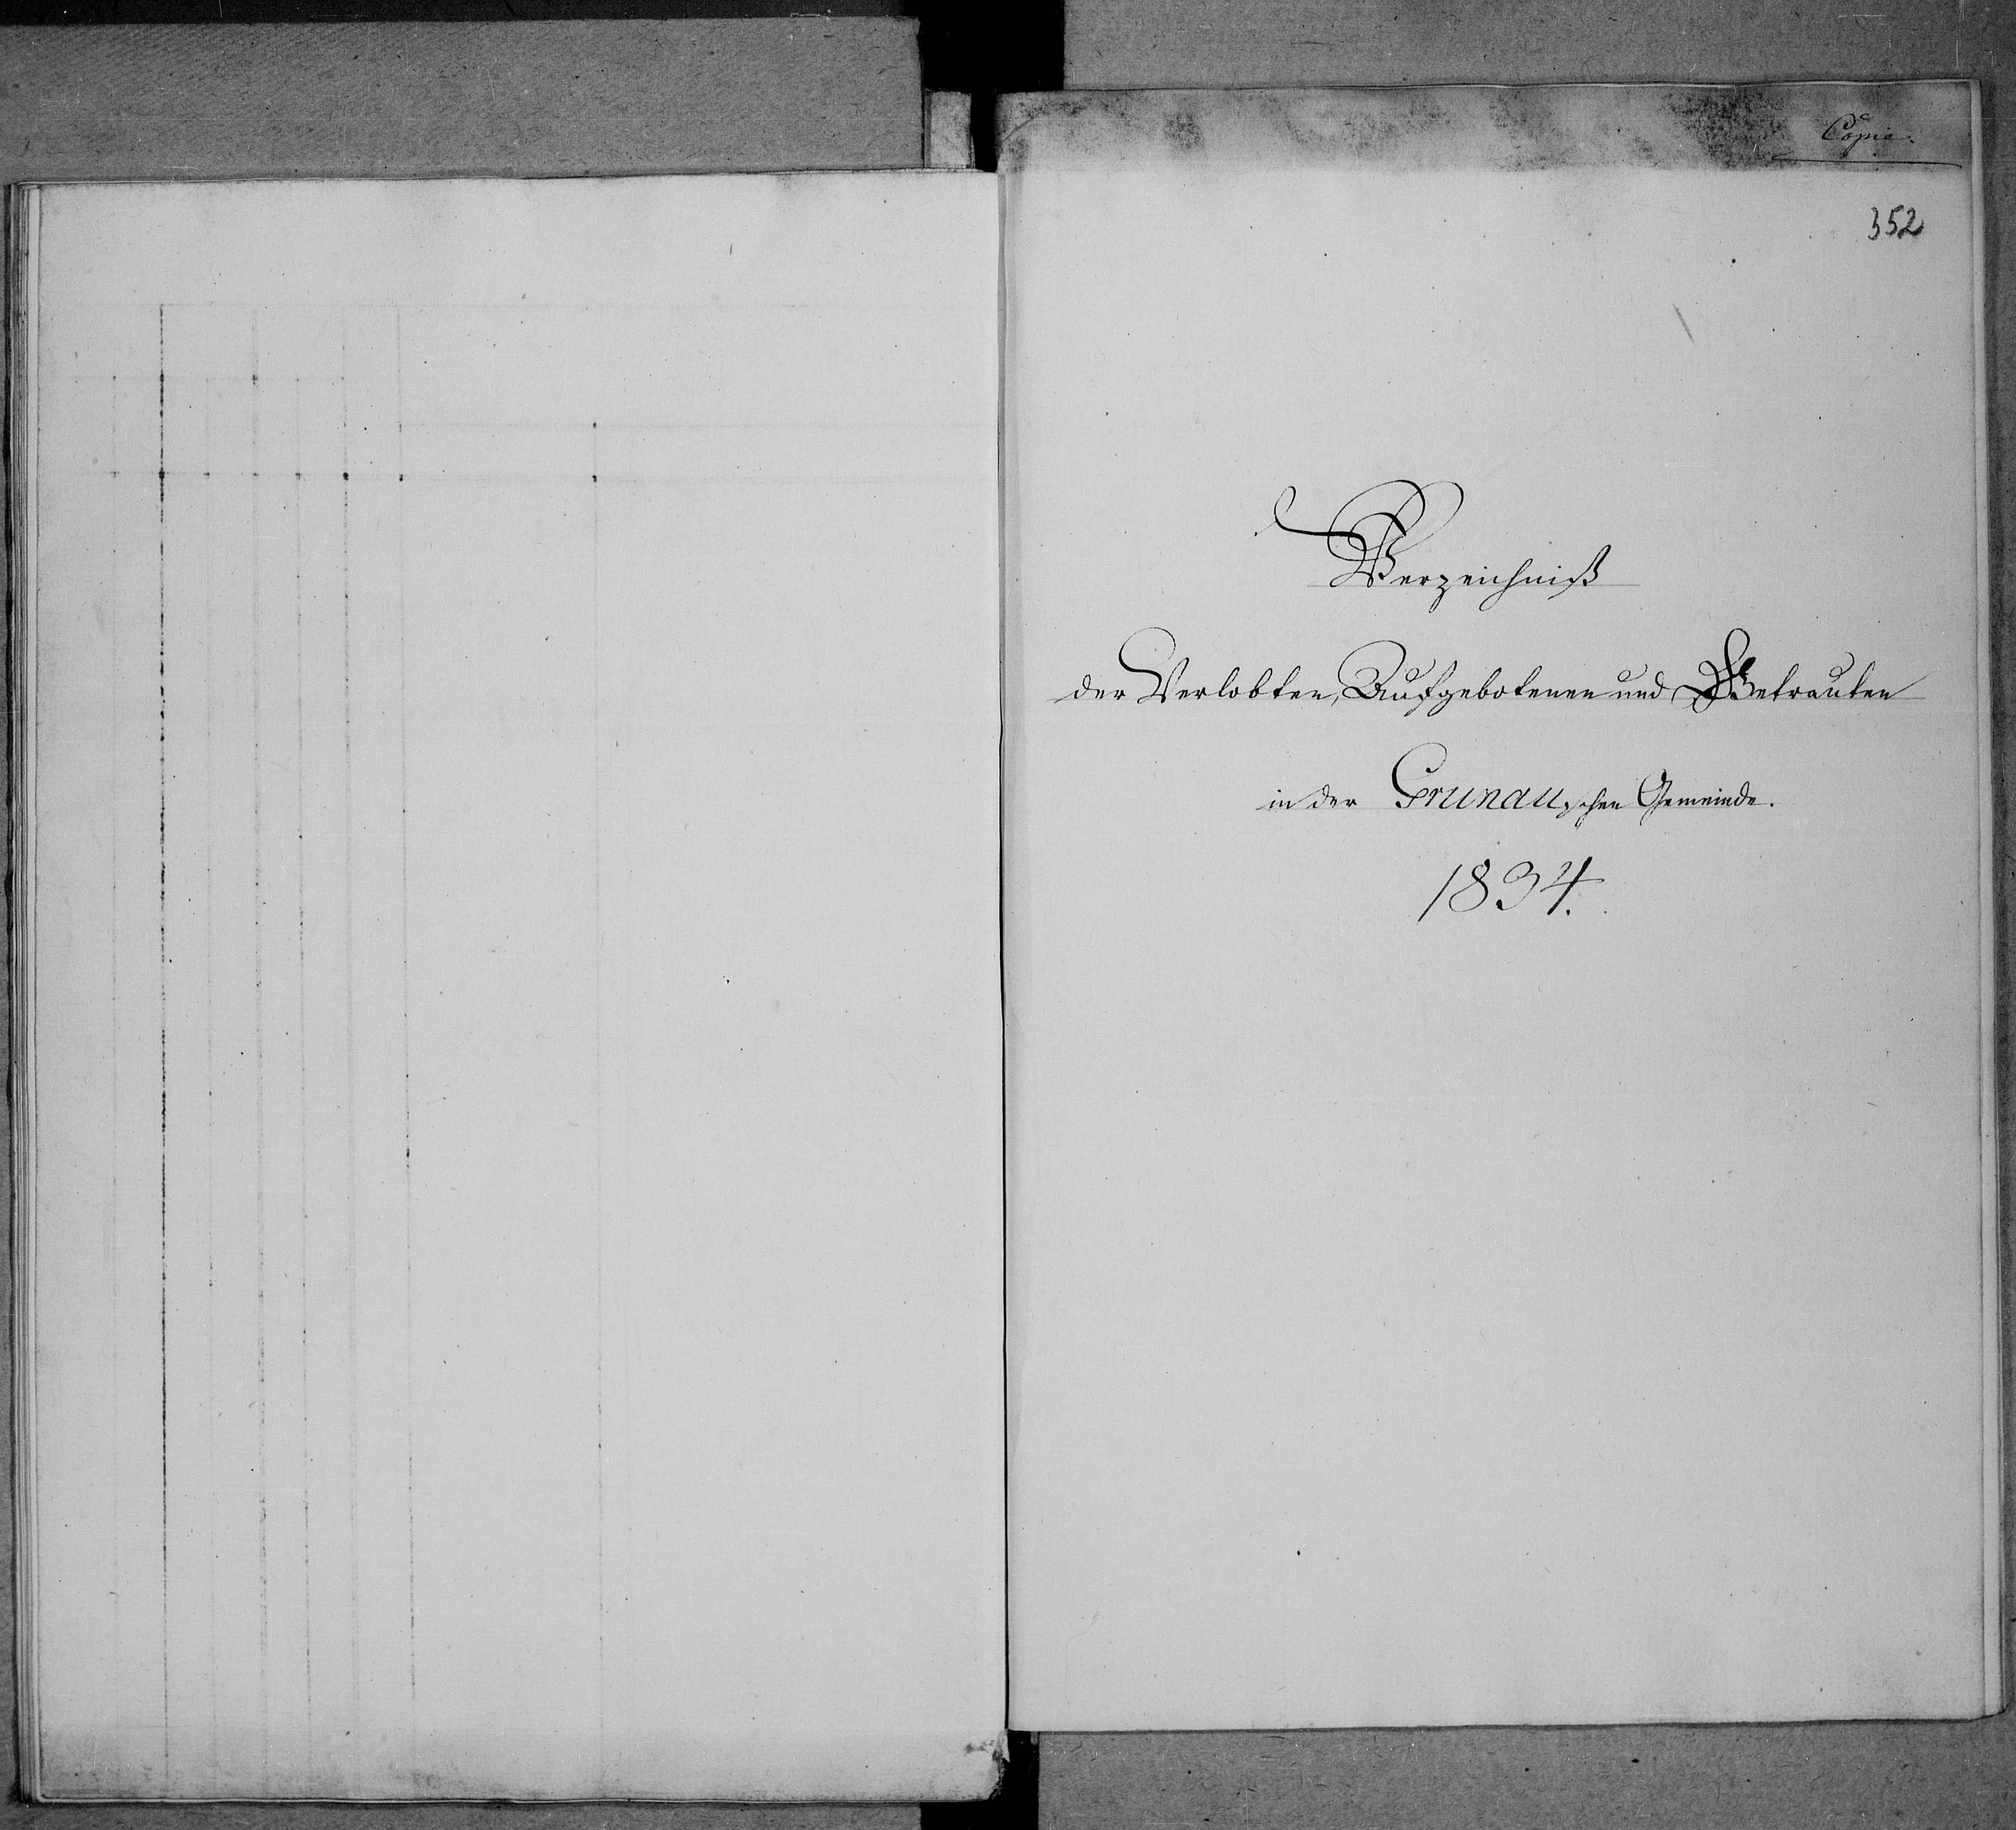 Copie.
352
Verzeichniß
der Verlobten, Aufgebotenen und Getrauten
in der Grunauschen Gemeinde.
1834.